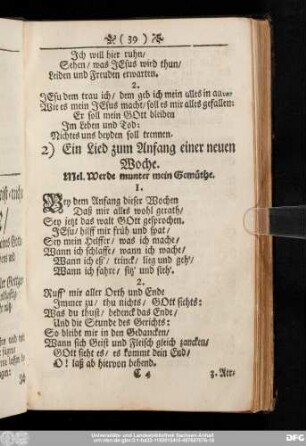 ( 39 )
Ich will hier ruhn/
Sehen/ was JEsus wird thun/
Leiden und Freuden erwarten.
2.
JEsu dem trau ich/ dem geb ich mein alles in allen/
Wie es mein JEsus macht/ soll es mir alles gefallen:
Er soll mein GOtt bleiben
Im Leben und Tod:
Nichtes uns beyden soll trennen.
2) Ein Lied zum Anfang einer neuen
Woche.
Mel. Werde munter mein Gemüthe.
1.
Bey dem Anfang dieser Wochen
Daß mir alles wohl gerath/
Sey jetzt das walt GOtt gesprochen.
JEsu/ hilff mir früh und spat/
Sey mein Helffer/ was ich mache/
Wann ich schlaffe/ wann ich wache/
Wann ich eß/ trinck/ lieg und geh/
Wann ich fahre/ sitz/ und steh.
2.
Ruff mir aller Orth und Ende
Immer zu/ thu nichts/ GOtt siehts:
Was du thust/ bedenck das Ende/
Und die Stunde des Gerichts:
So bleibt mir in den Gedancken/
Wann sich Geist und Fleisch gleich zancken/
GOtt sieht es/ es kommt dein End/
O! laß ab hiervon behend.
C 4